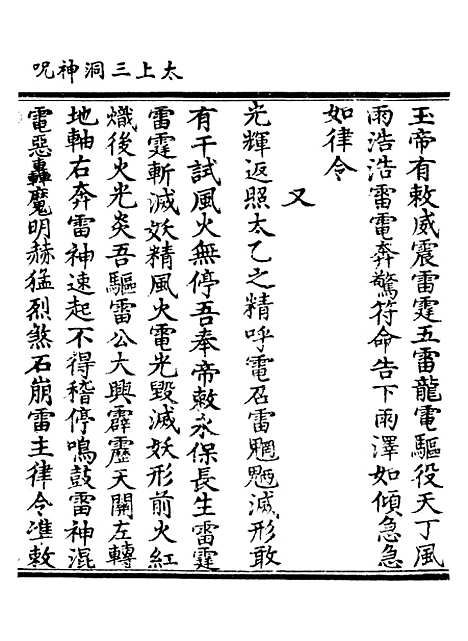 太上三洞神呪
玉帝有敕威震雷霆五雷龍電驅役天丁風
雨浩浩雷電奔驚符命告下雨澤如傾急急
如律令
又
光輝返照太乙之精呼電召雷魍魎滅形敢
有干試風火無停吾奉帝敕永保長生雷霆
雷霆斬滅妖精風火電光毀滅妖形前火紅
熾後火光炎吾驅雷公大興霹靂天關左轉
地軸右奔雷神速起不得稽停鳴鼓雷神混
電惡轟魔明赫猛烈煞石崩雷主律令準敕